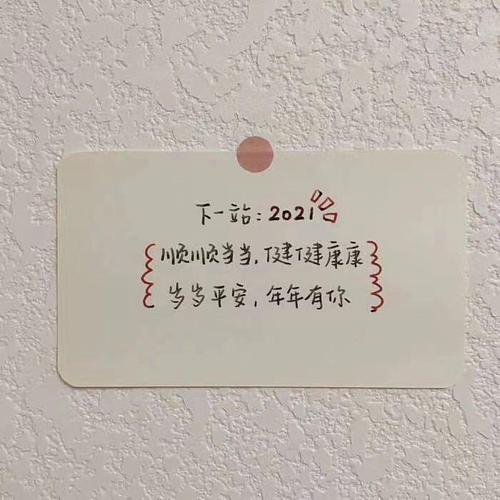 下一站:2021
顺顺当当,健健康康
岁岁平安,年年有你